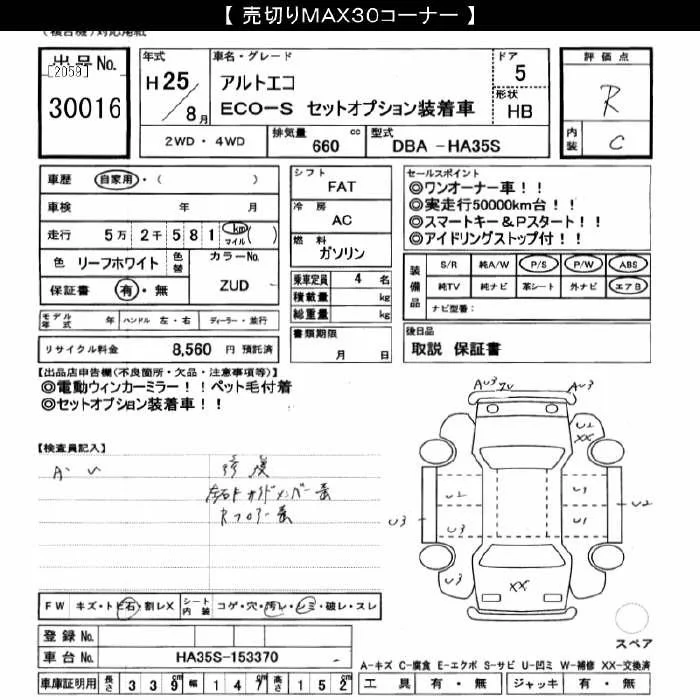 【 売切りMAX30コーナー 】
出品No.
[2059]
30016
年式
H25 / 8月
車名・グレード
アルトエコ
ECO-S セットオプション装着車
ドア
5
形状
HB
評価点
R
内装
C
2WD・4WD
排気量
660 cc
型式
DBA -HA35S
車歴 自家用・( )
車検 年 月
走行 5万 2千 5 8 1 km マイル ( )
色 リーフホワイト 色替
カラーNo.
ZUD
保証書 有・無
シフト
FAT
冷房
AC
燃料
ガソリン
乗車定員 4 名
積載量 kg
総重量 kg
書類期限
月 日
セールスポイント
◎ワンオーナー車!!
◎実走行50000km台!!
◎スマートキー&Pスタート!!
◎アイドリングストップ付!!
装備品
S/R 純A/W P/S P/W ABS
純TV 純ナビ 革シート 外ナビ エアB
ナビ型番:
モデル年式 年 ハンドル 左・右 ディーラー・並行
リサイクル料金 8,560 円 預託済
後日品
取説 保証書
【出品店申告欄(不良箇所・欠品・注意事項等)】
◎電動ウィンカーミラー!!ペット毛付着
◎セットオプション装着車!!
【検査員記入】
A・U
修復
Rフロアー歪
AU3 AU3
U2
XX
U2 U1 U2
U3 U3 U1
U3 XX U3
FW キズ・トビ石・割レX
シート内装 コゲ・穴・汚レ・シミ・破レ・スレ
スペア
登録No.
車台No. HA35S-153370
A-キズ C-腐食 E-エクボ S-サビ U-凹ミ W-補修 XX-交換済
車庫証明用 長さ 339 幅 147 高さ 152cm
工具 有・無 ジャッキ 有・無